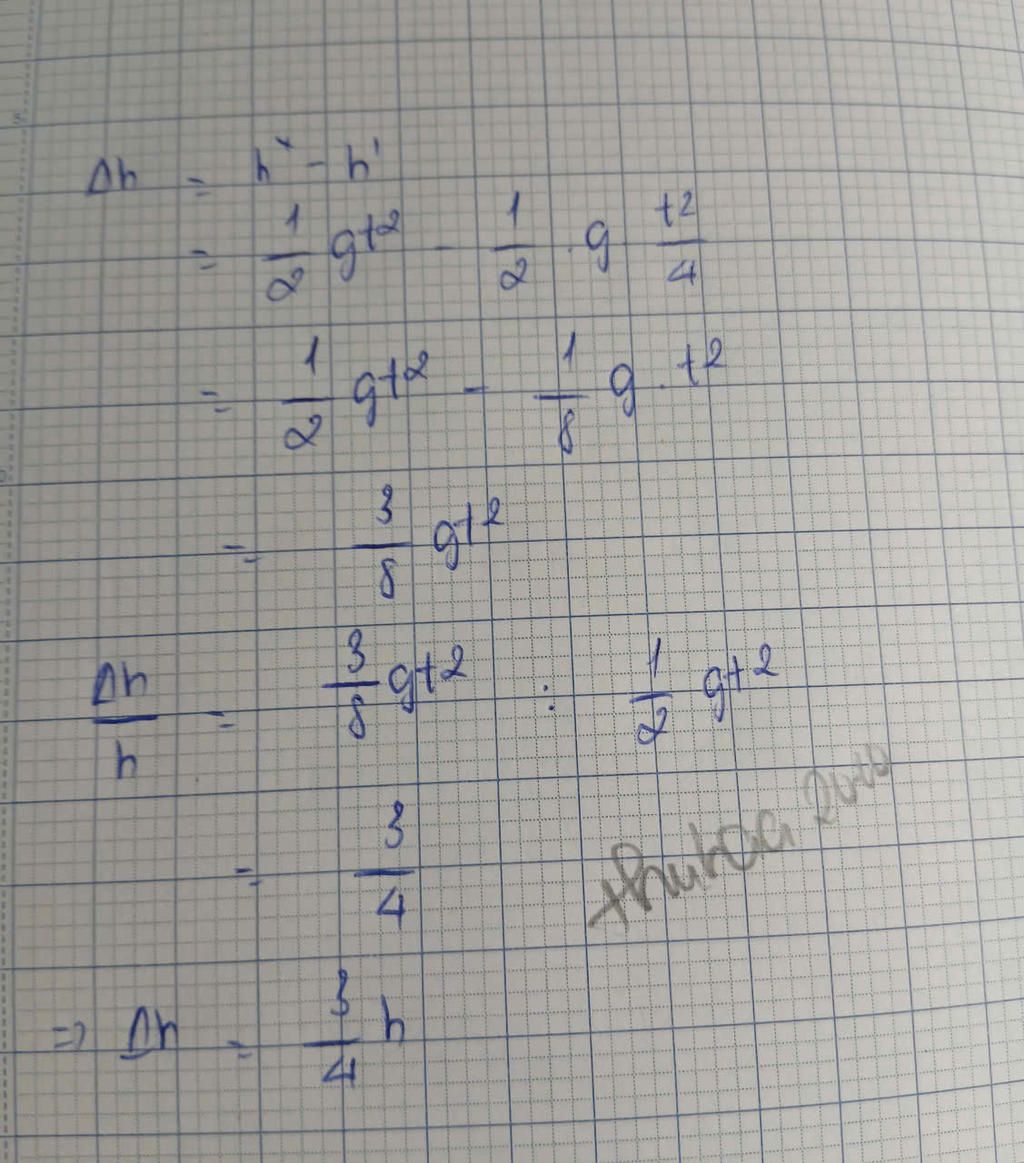 Δh = h` - h'
= 1/2 gt² - 1/2 . g t²/4
= 1/2 gt² - 1/8 g . t²
= 3/8 gt²
Δh/h = 3/8 gt² : 1/2 gt²
= 3/4
=> Δh = 3/4 h